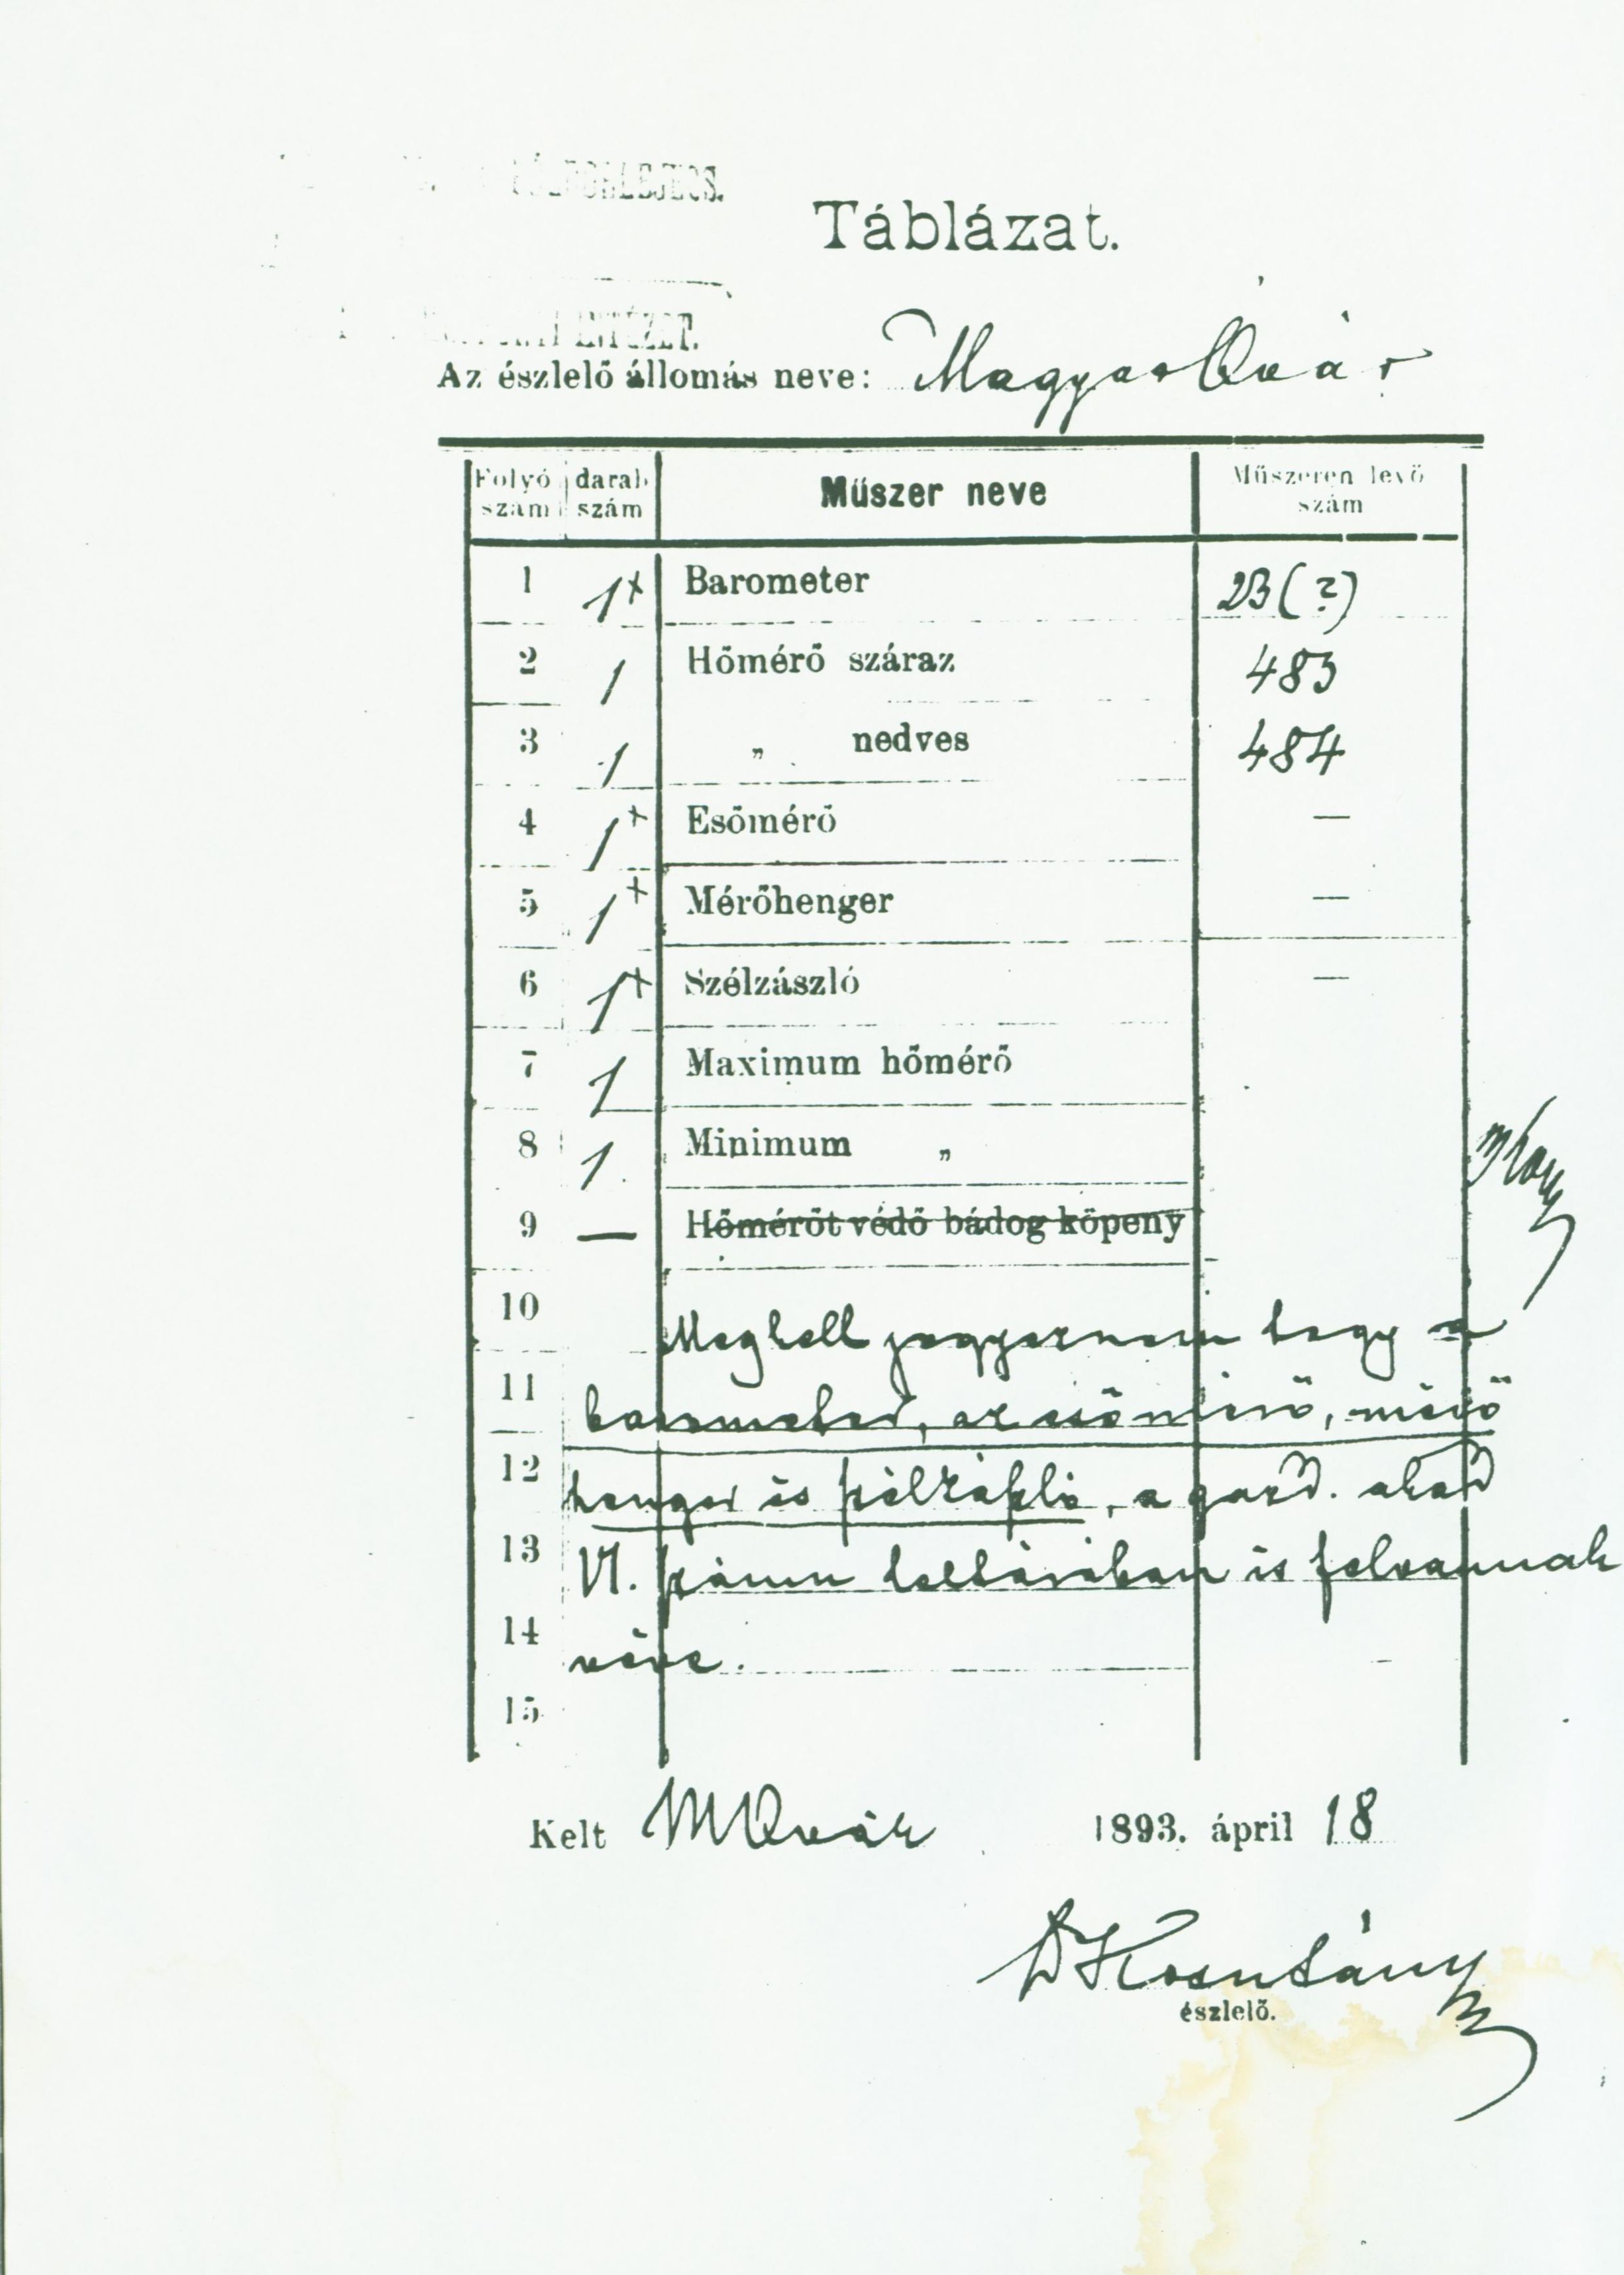 Táblázat.
INTÉZET.
Az észlelő állomás neve: Magyar Óvár
Folyó szám darab szám Műszer neve Műszeren levő szám
1 1+ Barometer 23 (?)
2 1 Hőmérő száraz 483
3 1 „ nedves 484
4 1+ Esőmérő —
5 1+ Mérőhenger —
6 1+ Szélzászló —
7 1 Maximum hőmérő
8 1 Minimum „
9 — Hőmérőt védő bádog köpeny
10 Megkell jegyeznem hogy a
11 barometer, az esőmérő, mérő
12 henger és szélzászló, a gazd. akad
13 VI. számu leltárában is felvannak
14 véve.
15
Kelt MÓvár 1893. ápril 18
Dr Kosutány
észlelő.